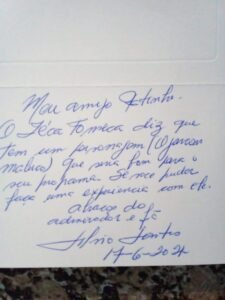 Meu amigo
O Zéca Fonseca diz que
tem um personagem (O
maluco) que seria bom para o
seu programa. Se você puder
faça uma experiencia com ele.
abraço do
admirador e fã
Silvio Santos
17-6-2021